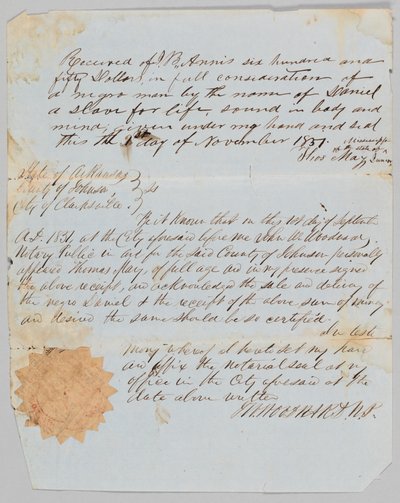 Received of J. B. Annis six hundred and
fifty Dollars, in full consideration of
a negro man by the name of Daniel
a slave for life, sound in body and
mind, given under my hand and seal
this the 1st day of November 1851.
Thos May
State of Arkansas
County of Johnson } ss
City of Clarksville
Be it known that on this 1st day of
A.D. 1851, at the City aforesaid before me
Notary Public in and for the said County of Johnson personally
appeared Thomas May, of full age and in my presence signed
the above receipt, and acknowledged the sale and delivery of
the negro Daniel & the receipt of the above sum of money
and desired the same should be so certified.
In testi
mony whereof I have set my hand
and affix the notarial seal at my
office in the City aforesaid at the
date above written
N.P.